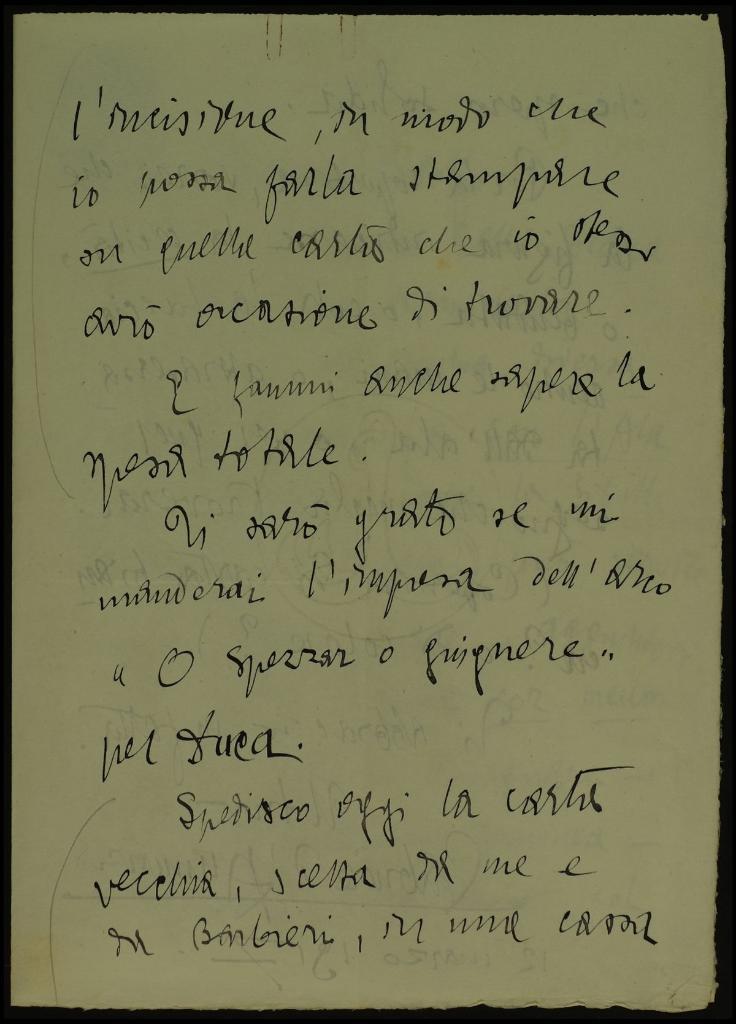 l'incisione, in modo che
io possa farla stampare
su quelle carte che io stesso
avrò occasione di trovare.
E fammi anche sapere la
spesa totale.
Ti sarò grato se mi
manderai l'impresa dell'arco
" O spezzar o giugnere "
pel Duca.
Spedisco oggi la carta
vecchia, scelta da me e
da Barbieri, in una cassa